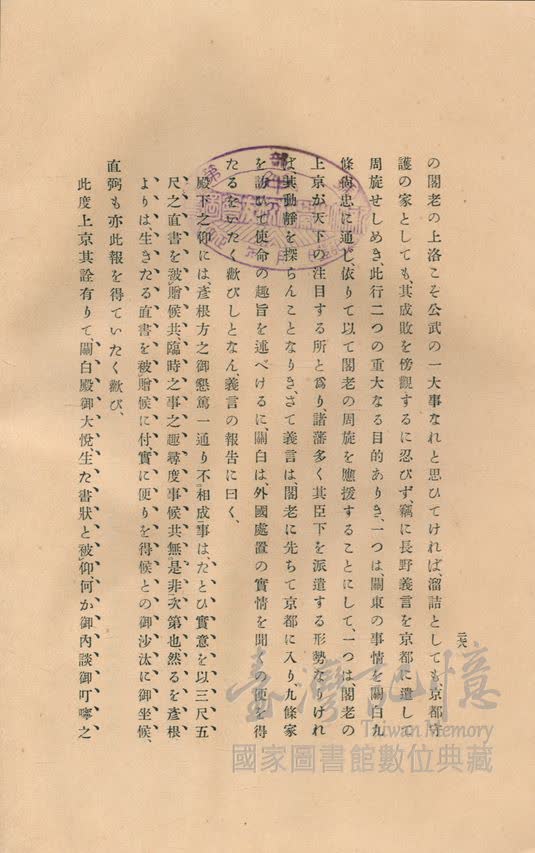 の閣老の上洛こそ公武の一大事なれと思ひてければ、溜詰としても、京都守
護の家としても、其成敗を傍觀するに忍びず、竊に長野義言を京都に遣して
周旋せしめき、此行二つの重大なる目的ありき、一つは、關東の事情を關白九
條尚忠に通じ、依りて以て閣老の周旋を應援することにして、一つは閣老の
上京が天下の注目する所と爲り、諸藩多く其臣下を派遣する形勢なりけれ
ば、其動靜を探らんことなりき、さて義言は、閣老に先ちて京都に入り、九條家
を訪ひて使命の趣旨を述べけるに、關白は、外國處置の實情を聞の便を得
たるをいたく歡びしとなん、義言の報告に曰く、
殿下之仰には、彥根方之御懇篤一通り不相成事は、たとひ實意を以三尺五
尺之直書を被贈候共、臨時之事之趣尋度事候共無是非次第也、然るを彥根
よりは、生きたる直書を被贈候に付、實に便りを得候との御沙汰に御坐候、
直弼も亦此報を得ていたく歡び、
此度上京其詮有りて、關白殿御大悅、生た書狀と被仰、何か御內談御叮嚀之
二六八
臺灣記憶
Taiwan Memory
國家圖書館數位典藏